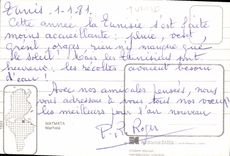 Tunis. 1.1.81.
Cette année, la Tunisie s'est faite
moins accueillante : pluie, vent,
orages, rien ne manque que
le soleil ! Mais les Tunisiens sont
heureux, les récoltes avaient besoin
d'eau !
Avec nos amicales pensées, nous
vous adressons à vous tous nos voeux
les meilleurs pour l'an nouveau
MATMATA
Roger